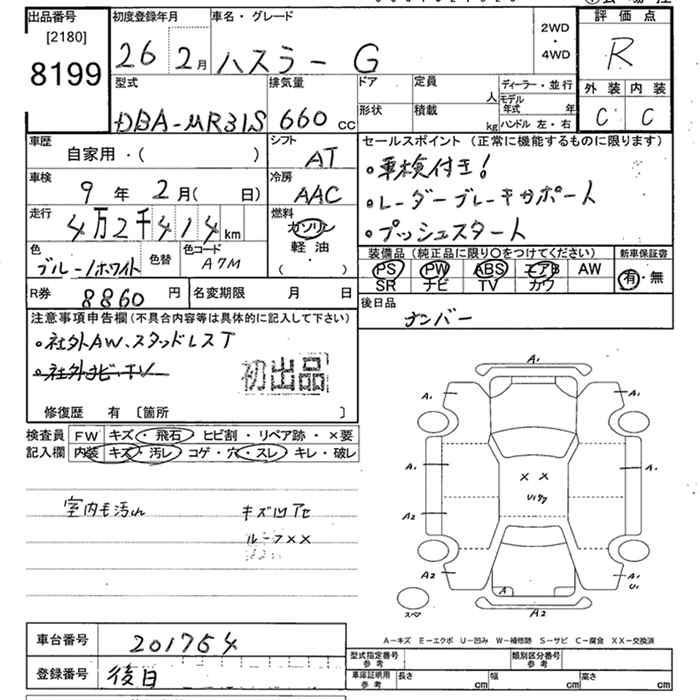 出品番号
[2180]
8199
初度登録年月
26 2月
車名・グレード
ハスラー G
2WD
・
4WD
評価点
R
外装 内装
C C
型式
DBA-MR31S
排気量
660 cc
ドア
形状
定員
人
積載
kg
ディーラー・並行
モデル年式 年
ハンドル 左・右
車歴
自家用・( )
シフト
AT
車検
9年 2月( 日)
冷房
AAC
走行
4万2千414km
燃料
ガソリン
軽油
( ・ )
色
ブルー/ホワイト
色替
色コード
A7M
R券
8860円
名変期限 月 日
セールスポイント(正常に機能するものに限ります)
・車検付き!
・レーダーブレーキサポート
・プッシュスタート
装備品(純正品に限り○をつけてください)
PS PW ABS エアB AW
SR ナビ TV カワ
新車保証書
有・無
後日品
ナンバー
注意事項申告欄(不具合内容等は具体的に記入して下さい)
・社外AW.スタッドレスT
・社外ナビ・TV
初出品
修復歴 有 〔箇所 〕
検査員
記入欄
FW キズ・飛石・ヒビ割・リペア跡・×要
内装 キズ・汚レ・コゲ・穴・スレ・キレ・破レ
室内モ汚れ
キズ凹アセ
ルーフ××
A1
A1 A1
A1 A1
A2
A2 A1
U1
A
A2
××
スペア
A－キズ E－エクボ U－凹み W－補修跡 S－サビ C－腐食 XX－交換済
車台番号
201754
登録番号
後日
型式指定番号
参考
類別区分番号
参考
車庫証明用
参考
長さ cm
幅 cm
高さ cm